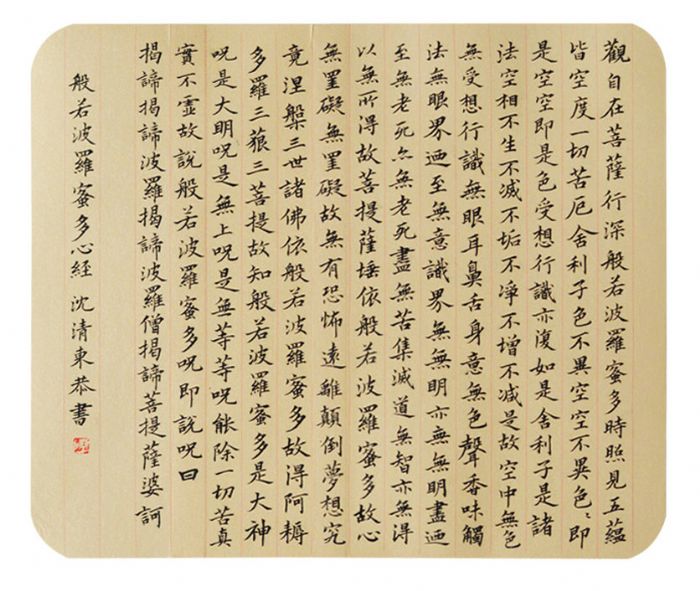 觀自在菩薩行深般若波羅蜜多時照見五蘊
皆空度一切苦厄舍利子色不異空空不異色〻即
是空空即是色受想行識亦復如是舍利子是諸
法空相不生不滅不垢不淨不增不減是故空中無色
無受想行識無眼耳鼻舌身意無色聲香味觸
法無眼界迺至無意識界無無明亦無無明盡迺
至無老死亦無老死盡無苦集滅道無智亦無得
以無所得故菩提薩埵依般若波羅蜜多故心
無罣礙無罣礙故無有恐怖遠離顛倒夢想究
竟涅槃三世諸佛依般若波羅蜜多故得阿耨
多羅三藐三菩提故知般若波羅蜜多是大神
呪是大明呪是無上呪是無等等呪能除一切苦真
實不虛故說般若波羅蜜多呪即說呪曰
揭諦揭諦波羅揭諦波羅僧揭諦菩提薩婆訶
般若波羅蜜多心經 沈清東恭書